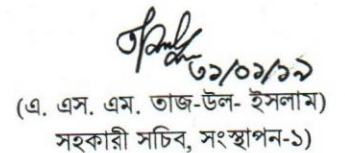 ৩১/০১/১৯
(এ. এস. এম. তাজ-উল- ইসলাম)
সহকারী সচিব, সংস্থাপন-১)